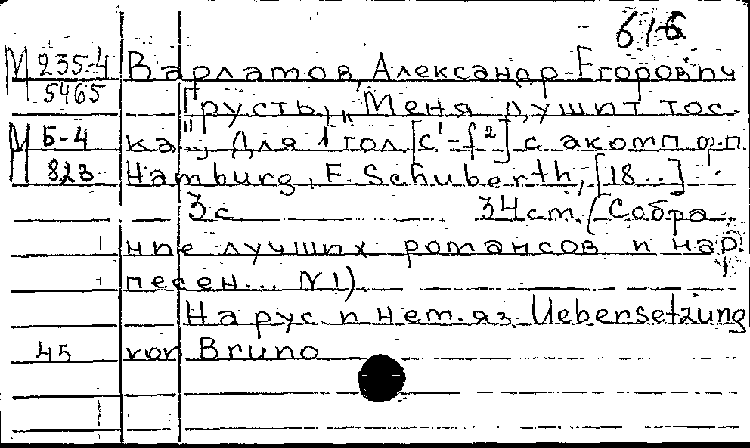 616
М 235-4 Варламов, Александр Егорович
5465 [Грусть], "Меня душит тос-
М Б-4 ка"; Для 1 гол. [c¹-f²] с акомп ф.п.
823 Hamburg, F. Schuberth, [18..]
3 с 34 cm. (Собра-
ние лучших романсов и нар.
песен... N 1)
На рус и нем. яз. Uebersetzung
45 von Bruno